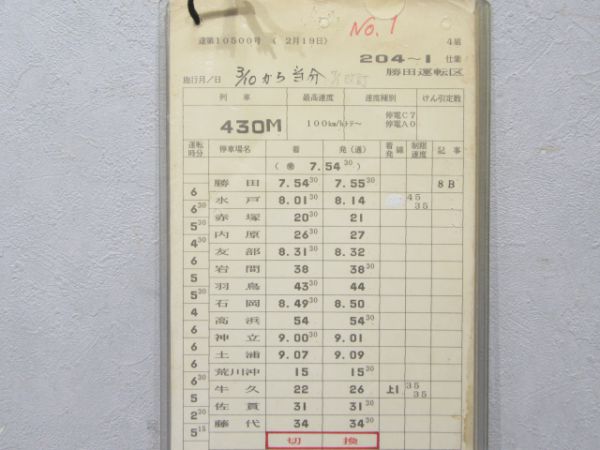 No.1
達第10500号 (2月19日) 4組
204~1 仕業
施行月/日 3/10から当分 勝田運転区
列車 最高速度 速度種別 けん引定数
430M 100km/h 停電C7
停電A0
運転時分 停車場名 着 発(通) 着発線 制限速度 記事
7.54³⁰
勝田 7.54³⁰ 7.55³⁰ 8B
6
水戸 8.01³⁰ 8.14 45 35
6³⁰
赤塚 20³⁰ 21
5³⁰
内原 26³⁰ 27
4³⁰
友部 8.31³⁰ 8.32
6
岩間 38 38³⁰
5
羽鳥 43³⁰ 44
5
石岡 8.49³⁰ 8.50
4
高浜 54 54³⁰
6
神立 9.00³⁰ 9.01
6
土浦 9.07 9.09
6
荒川沖 15 15³⁰
6³⁰
牛久 22 26 上1 35 35
5
佐貫 31 31³⁰
2³⁰
藤代 34 34³⁰
5¹⁵
切換